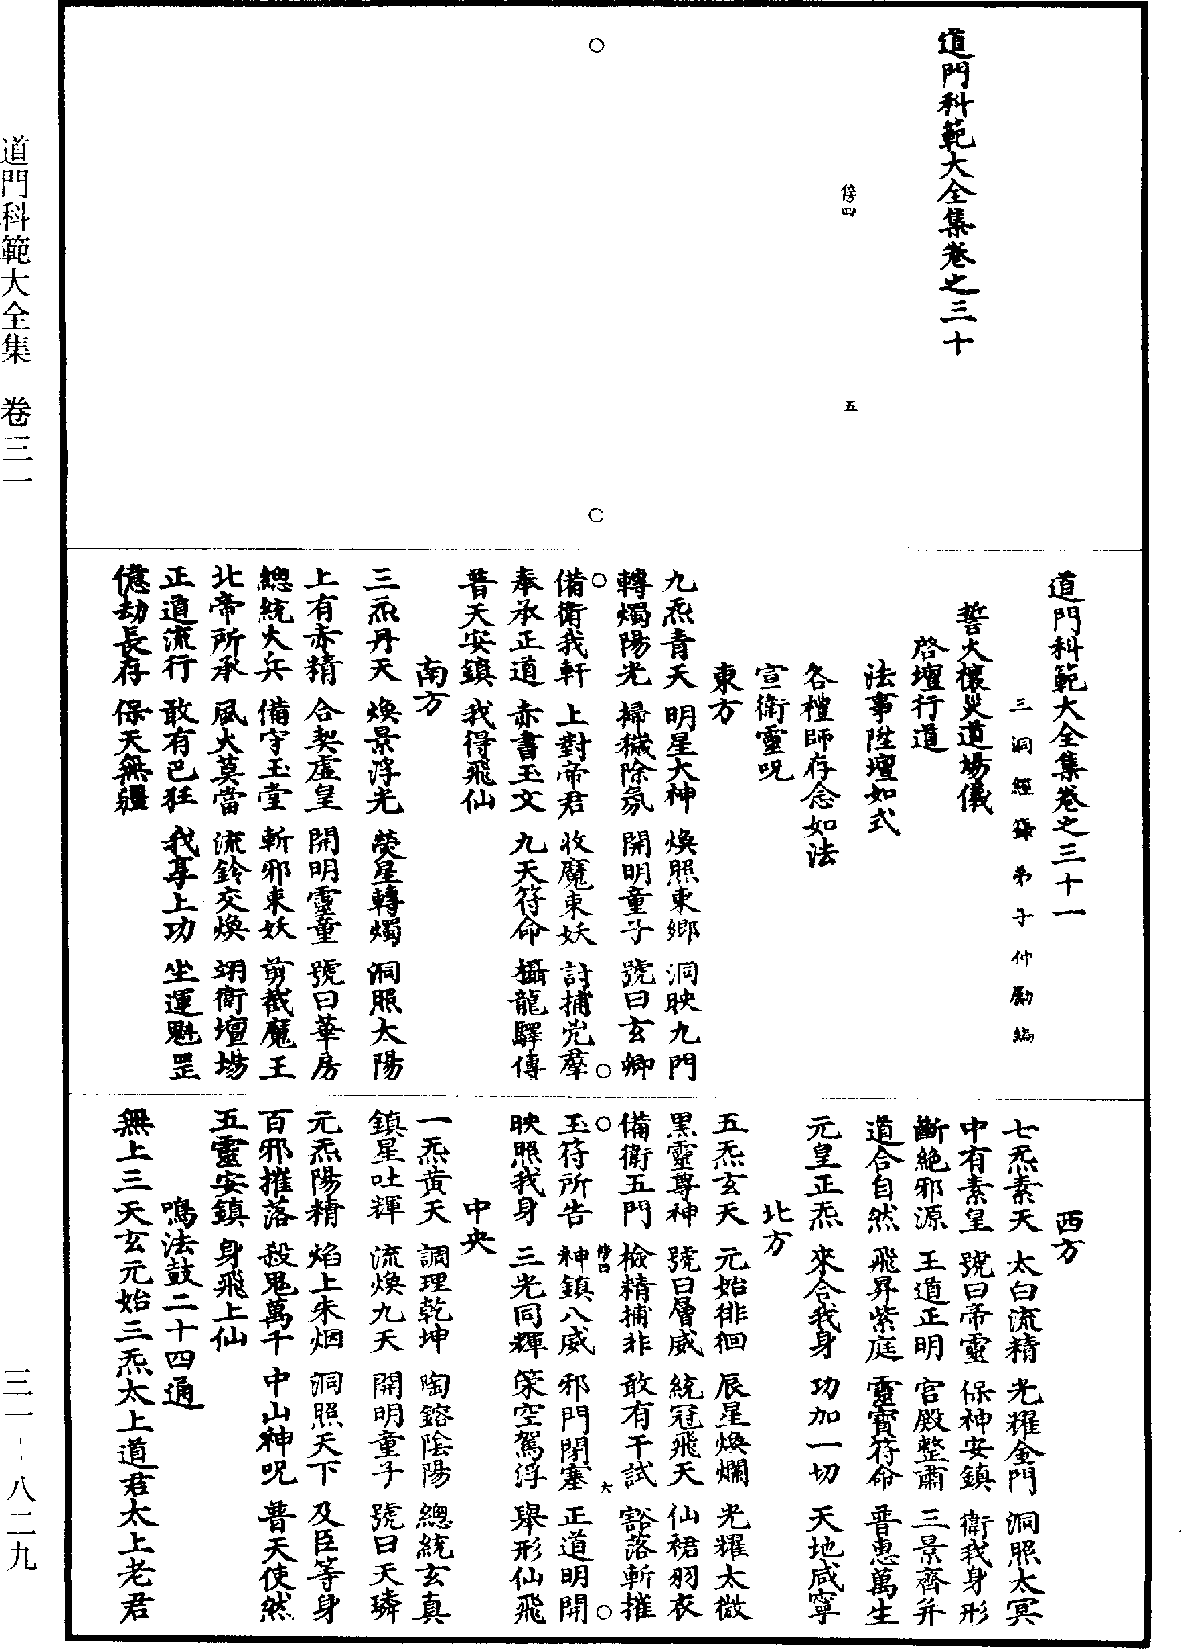 道門科範大全集卷之三十
傍四
五
道門科範大全集卷之三十一
三洞經籙弟子仲勵編
誓火禳災道場儀
啓壇行道
法事陞壇如式
各禮師存念如法
宣衛靈呪
東方
九炁青天 明星大神 煥照東鄉 洞映九門
轉燭陽光 掃穢除氛 開明童子 號曰玄卿
備衛我軒 上對帝君 收魔束妖 討捕兇羣
奉承正道 赤書玉文 九天符命 攝龍驛傳
普天安鎮 我得飛仙
南方
三炁丹天 煥景浮光 熒星轉燭 洞照太陽
上有赤精 合契虛皇 開明靈童 號曰華房
總統火兵 備守玉堂 斬邪束妖 剪截魔王
北帝所承 風火莫當 流鈴交煥 翊衛壇場
正道流行 敢有巴狂 我享上功 坐運魁罡
億劫長存 保天無疆
西方
七炁素天 太白流精 光耀金門 洞照太冥
中有素皇 號曰帝靈 保神安鎮 衛我身形
斷絕邪源 王道正明 宮殿整肅 三景齊并
道合自然 飛昇紫庭 靈寶符命 普惠萬生
元皇正炁 來合我身 功加一切 天地咸寧
北方
五炁玄天 元始徘徊 辰星煥爛 光耀太微
黑靈尊神 號曰層威 統冠飛天 仙裙羽衣
備衛五門 檢精捕非 敢有干試 豁落斬摧
玉符所告 神鎮八威 邪門閉塞 正道明開
傍四
六
映照我身 三光同輝 策空駕浮 舉形仙飛
中央
一炁黃天 調理乾坤 陶鎔陰陽 總統玄真
鎮星吐輝 流煥九天 開明童子 號曰天璘
元炁陽精 焰上朱烟 洞照天下 及臣等身
百邪摧落 殺鬼萬千 中山神呪 普天使然
五靈安鎮 身飛上仙
鳴法鼓二十四通
無上三天玄元始三炁太上道君太上老君
道門科範大全集 卷三一
三一-八二九